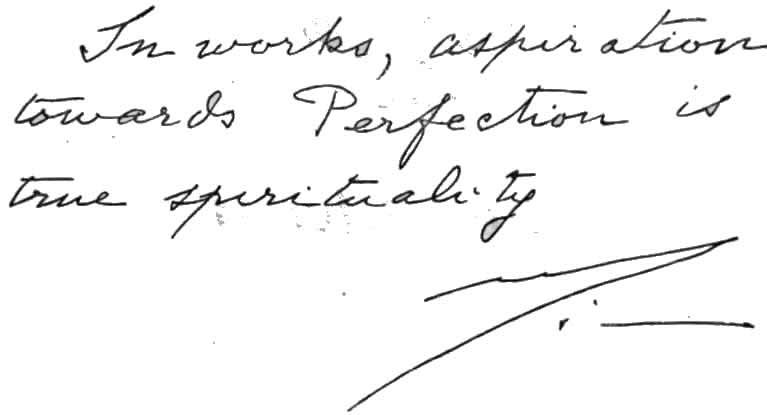 In works, aspiration
towards Perfection is
true spirituality